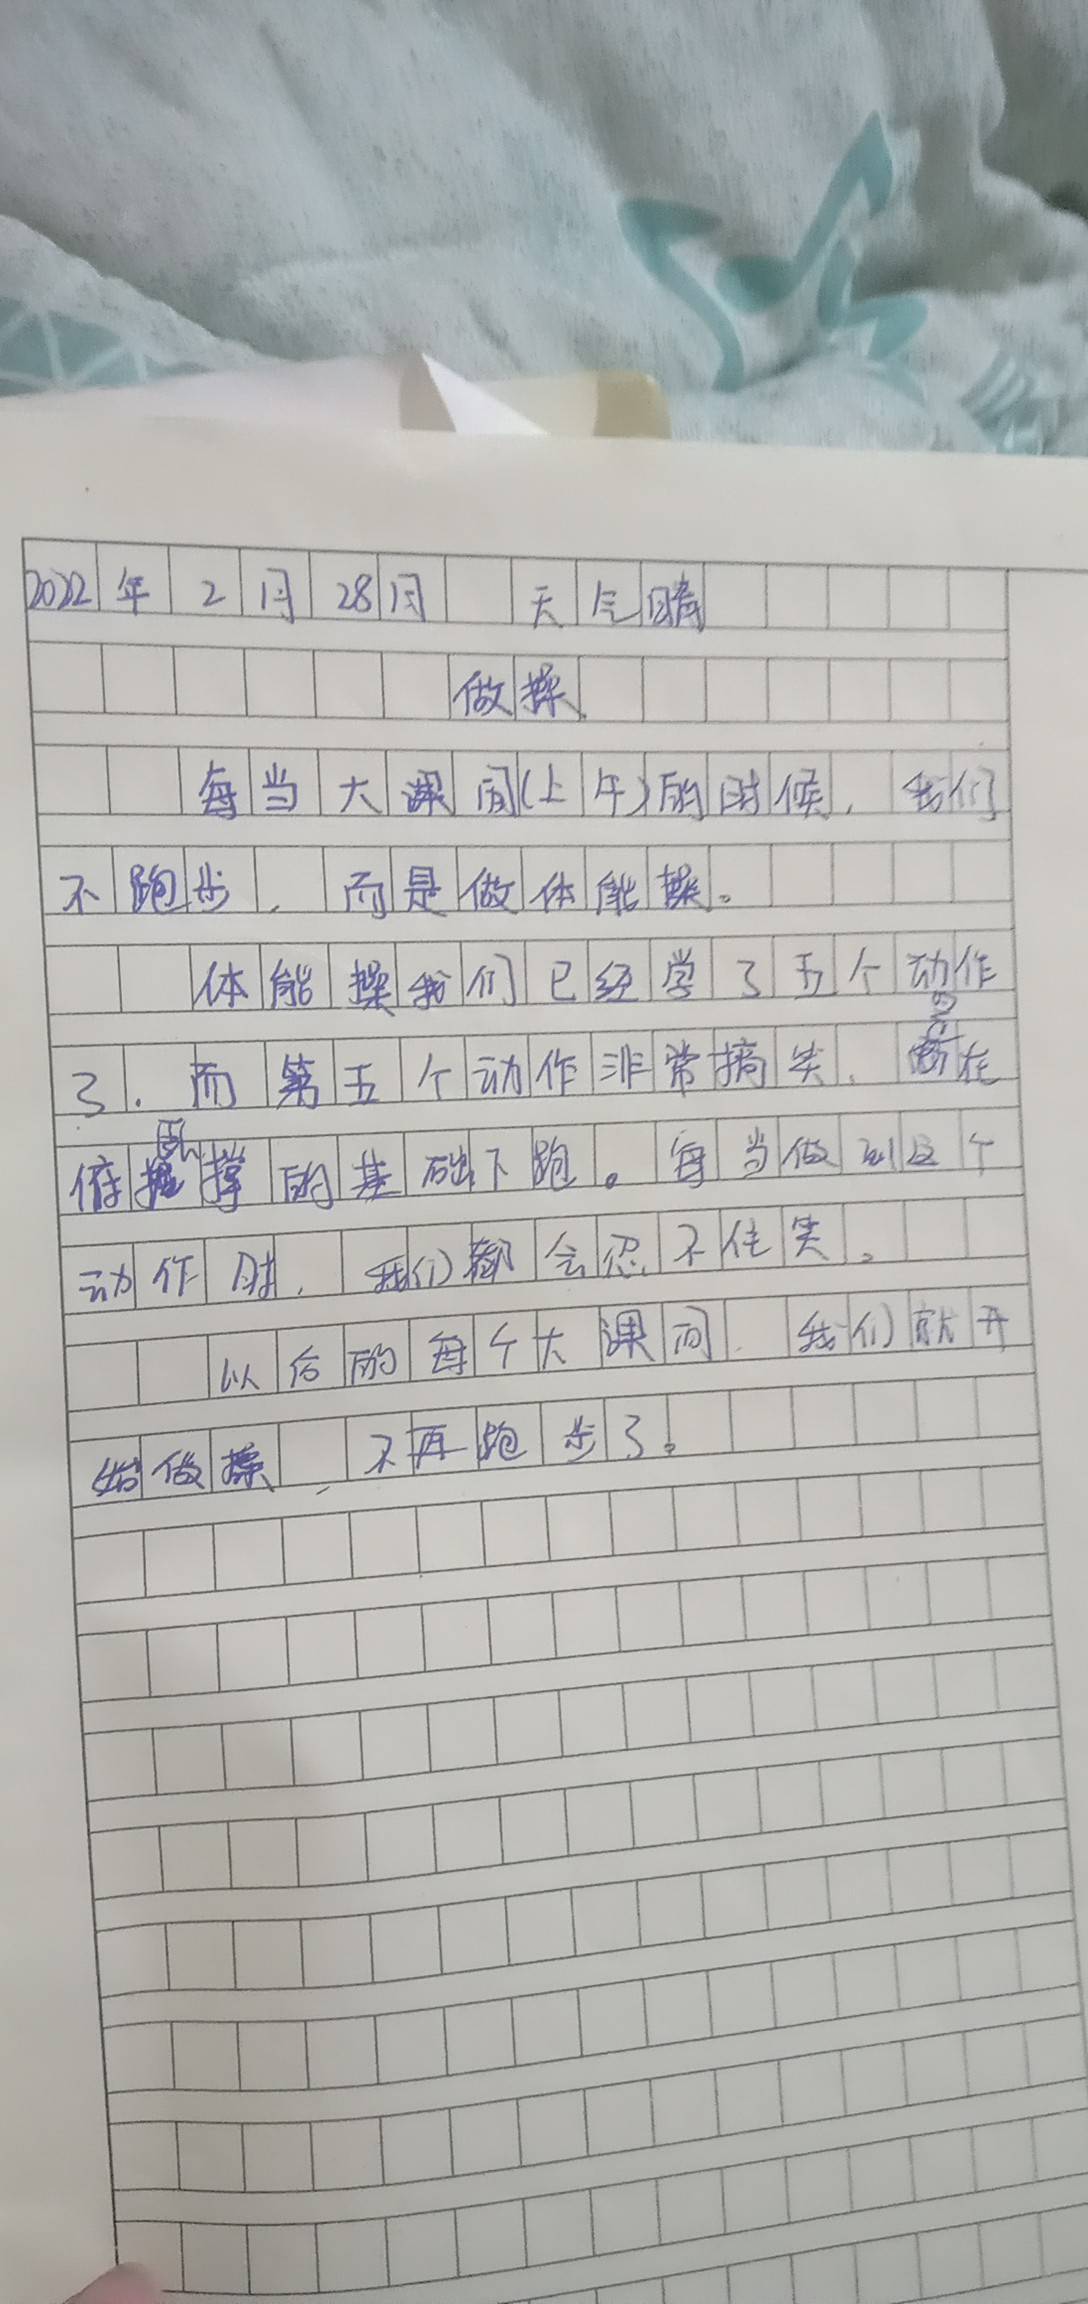 2022年2月28日 天气晴
做操
每当大课间(上午)的时候,我们
不跑步,而是做体能操。
体能操我们已经学了五个动作
了.而第五个动作非常搞笑,在
俯卧撑的基础下跑。每当做到这个
动作时,我们都会忍不住笑。
以后的每个大课间,我们就开
始做操,不再跑步了。